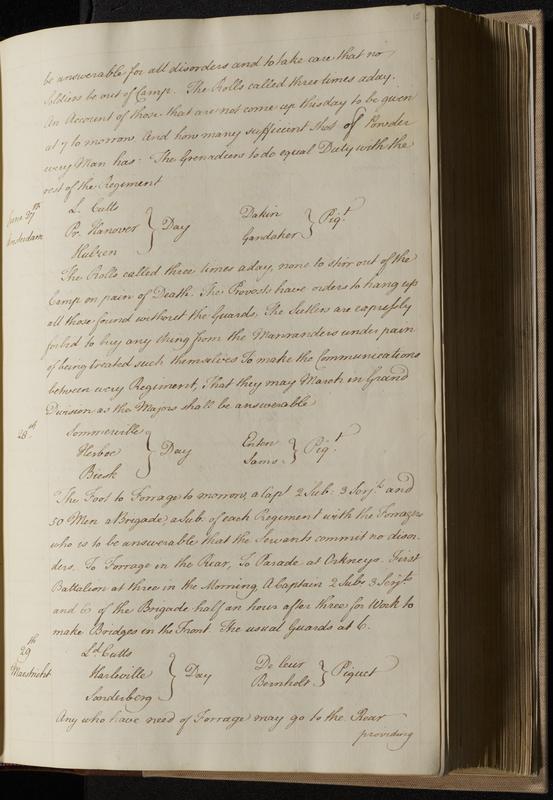 be answerable for all disorders and to take care that no
Soldiers be out of Camp. The Rolls called three times a day.
An Account of those that are not come up this day to be given
at 7 to morrow, And how many sufficient Shot of Powder
every Man has. The Grenadiers to do equal Duty with the
rest of the Regiment
June 27th
L. Cutts
Pr. Hanover } Day
Hulsen
Dakin
Gandaker } Piqt.
The Rolls called three times a day, none to stirr out of the
Camp on pain of Death. The Provosts have orders to hang up
all those found without the Guards, The Sutlers are expressly
forbid to buy any thing from the Marauders under pain
of being treated such themselves To make the Communications
between every Regiment, That they may March in Grand
Division as the Majors shall be answerable
28th
Sommerville
Herboe } Day
Biesk
Enton
Sams } Piqt.
The Foot to Forrage to morrow, a Capt 2 Sub: 3 Serjts and
50 Men a Brigade, a Sub. of each Regiment with the Forragers
who is to be answerable that the Servants commit no disor-
ders. To Forrage in the Rear, To Parade at Orkneys. First
Battalion at three in the Morning A Captain 2 Subs 3 Serjts
and of the Brigade half an hour after three for Work to
make Bridges in the Front. The usual Guards at 6.
29th
Maestricht
Ld. Cutts
Harleville } Day
Sonderberg
De leur
Bernholt } Piquet
Any who have need of Forrage may go to the Rear
providing